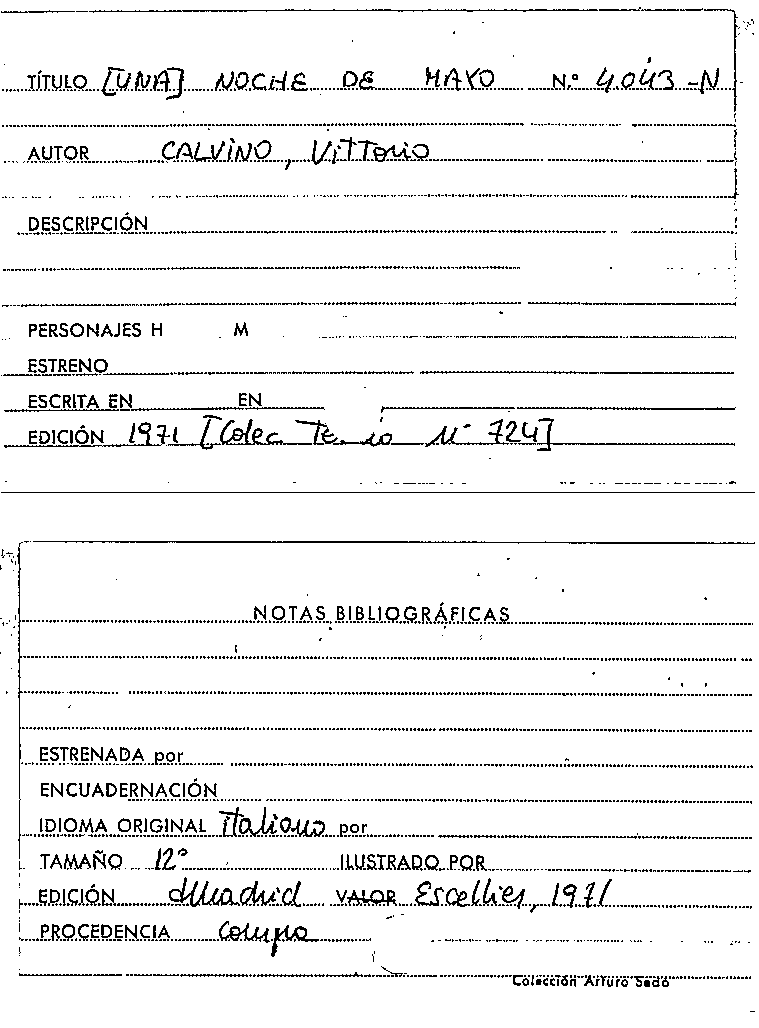 TÍTULO [UNA] NOCHE DE MAYO N.º 4.043-N
AUTOR CALVINO, VITTorio
DESCRIPCIÓN
PERSONAJES H M
ESTRENO
ESCRITA EN EN
EDICIÓN 1971 [Colec. Nº 724]
NOTAS BIBLIOGRÁFICAS
ESTRENADA por
ENCUADERNACIÓN
IDIOMA ORIGINAL Italiano por
TAMAÑO 12º ILUSTRADO POR
EDICIÓN Madrid VALOR 1971
PROCEDENCIA Compra
Colección Arturo Sedó